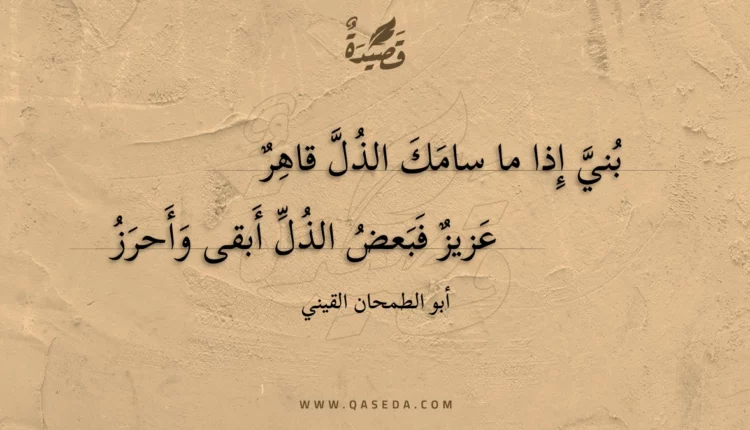 قَصِيدَةٌ
بُنيَّ إِذا ما سامَكَ الذُلَّ قاهِرٌ
عَزيزٌ فَبَعضُ الذُلِّ أَبقى وَأَحرَزُ
أبو الطمحان القيني
WWW.QASEDA.COM